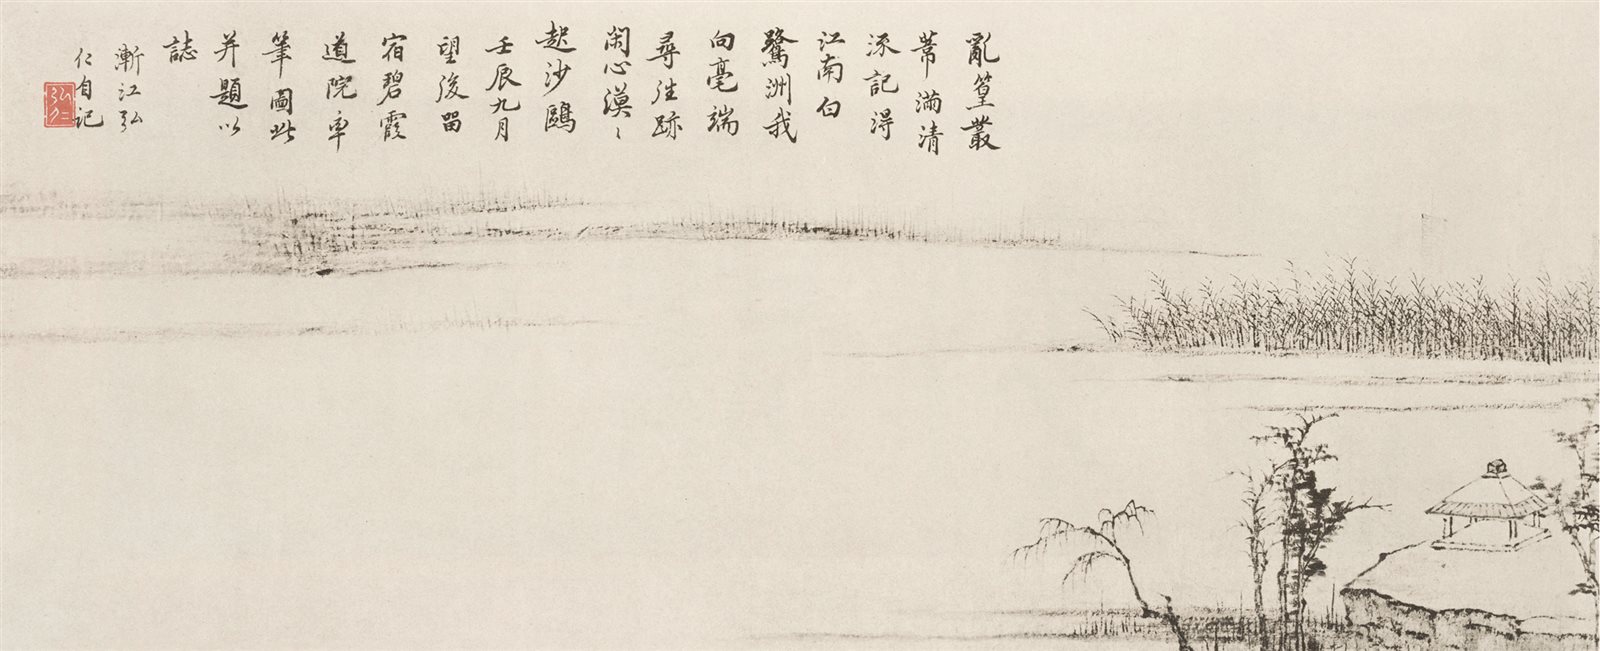 亂篁叢
葦滿清
流記得
江南白
鷺洲我
向毫端
尋往跡
閑心漠〻
起沙鷗
壬辰九月
望後留
宿碧霞
道院率
筆圖此
并題以
誌
漸江弘
仁自記
弘仁